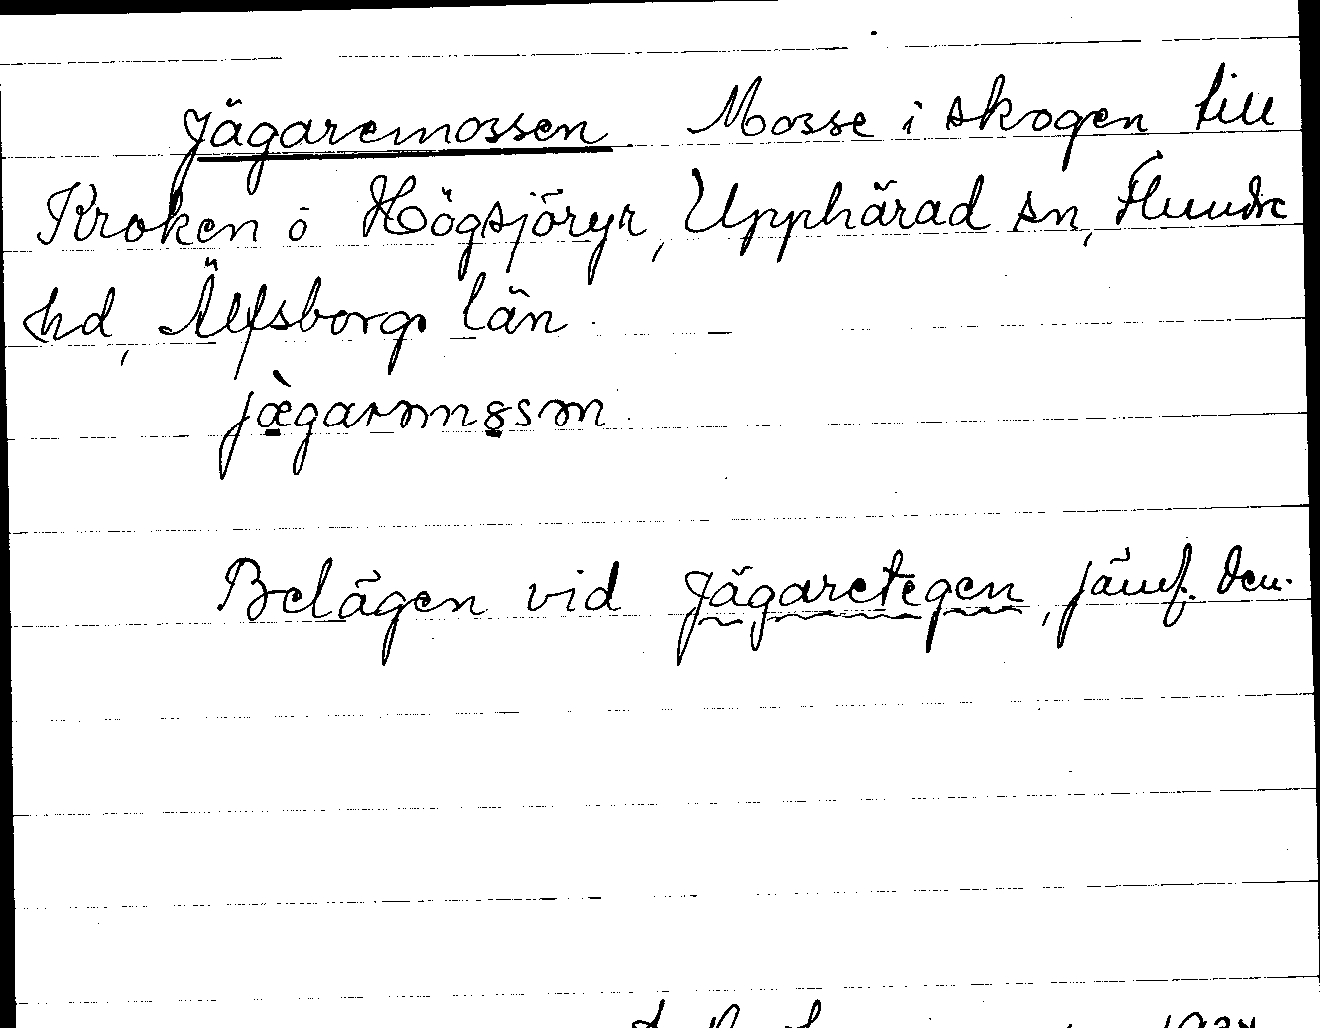 Jägaremossen Mosse i skogen till
Kroken o Högsjöryr, Upphärad sn, Flundre
hd, Älfsborgs län
jæ̀garmmosm
Belägen vid Jägaretegen, jämf. den.